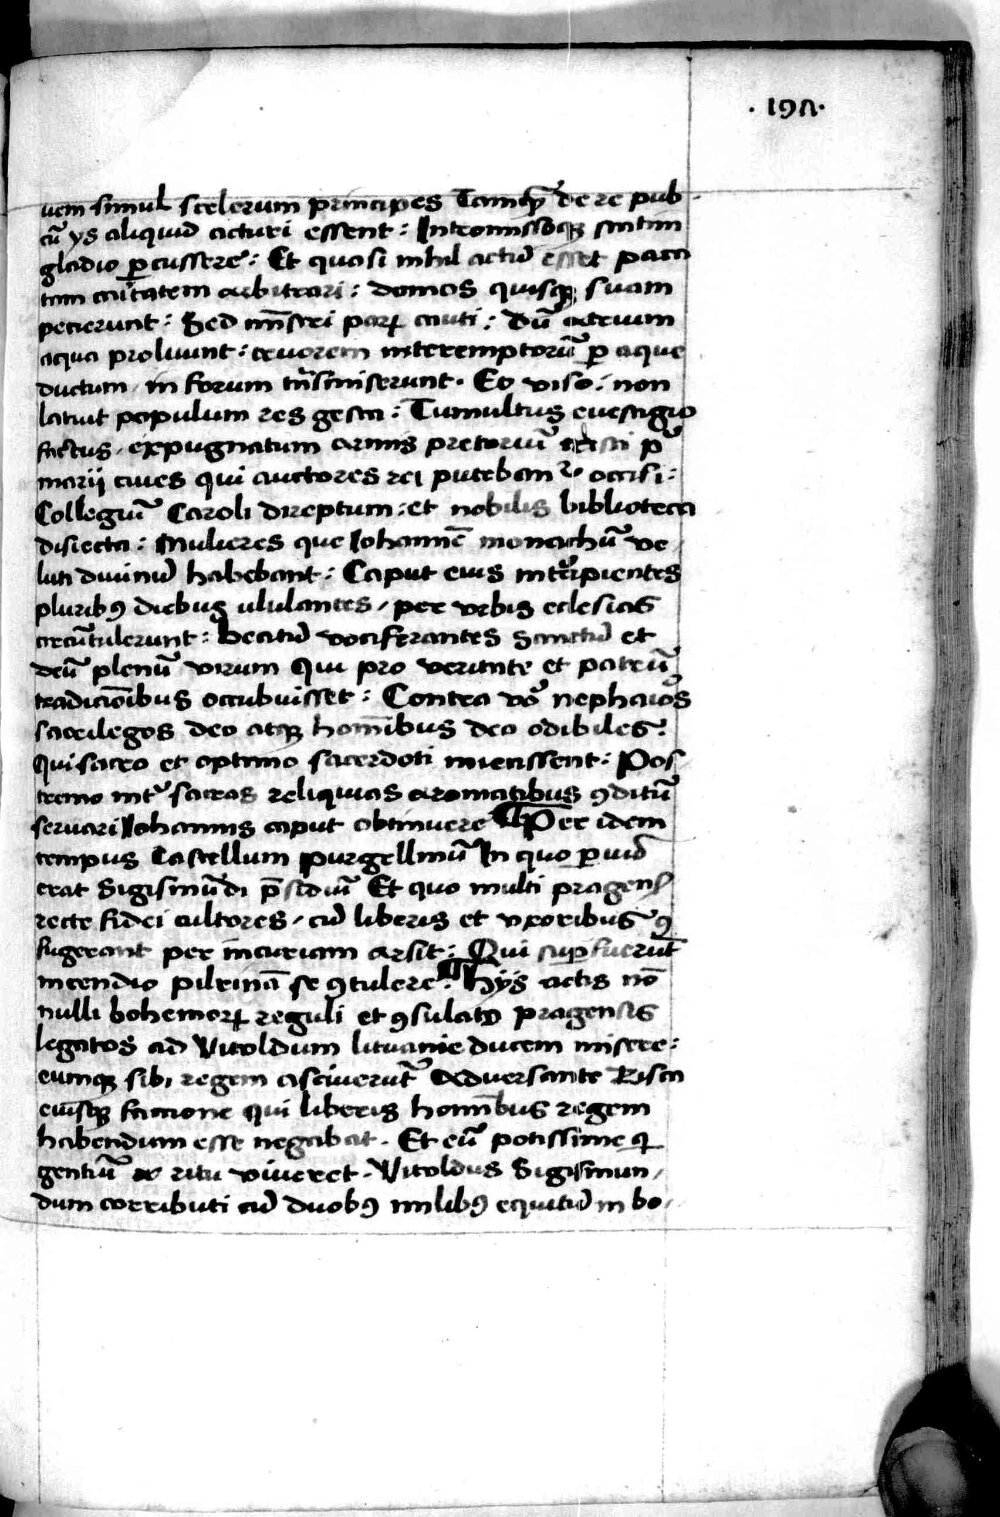 ·197·
uem simul scelerum principes Tamqȝ de re pub
cū ys aliquid acturi essent : Intromissosqȝ statim
gladio ꝑcussere : Et quasi nihil actū esset paca
tam ciuitatem arbitrari : domos quisqȝ suam
petierunt : Sed mīstri paꝝ cauti : dū atrium
aqua proluunt : cruorem interemptorū ꝑ aque
ductum in forum trāsmiserunt · Eo viso : non
latuit populum res gesta : Tumultus euestigio
factus expugnatum armis pretoriū
marii ciues qui auctores rei putebant᷑ occisi :
Collegiū Caroli direptum : et nobilis biblioteca
disiecta : Mulieres que Iohannē monachū ve
luti diuinū habebant : Caput eius int̄ripientes
pluribꝰ diebus ululantes / per vrbis eclesias
circūtulerunt : beatū vociferantes sanctū et
deū plenū virum Qui pro veritate et patrū
tradicioībus occubuisset : Contra vō nepharios
sacrilegos deo atqȝ homībus deo odibiles :
Qui sacro et optimo sacerdoti iniecissent : Pos
tremo int̄ sacras reliquias aromatibus ꝯditū
seruari Iohannis caput obtinuere ¶ Per idem
tempus Castellum purgellinū In quo ꝑuū
erat Sigismūdi p̄sidiū Et quo multi pragenß
recte fidei cultores / cū liberis et vxoribus ꝯ
fugerant per incuriam arsit : Qui suꝑfuerūt
incendio pilcinā se ꝯtulere : ¶ hys actis nō
nulli bohemoꝝ reguli et ꝯsulato pragensis
legatos ad Vitoldum lituanie ducem misere :
eumqȝ sibi regem asciuerūt Aduersante Zisca
eiusqȝ factione qui liberis homībus regem
habendum esse negabat · Et eū potissime q
gentiū ritu viueret · Vitoldus Sigismun /
dum corributi cū duobꝰ milibꝰ equitū in bo /